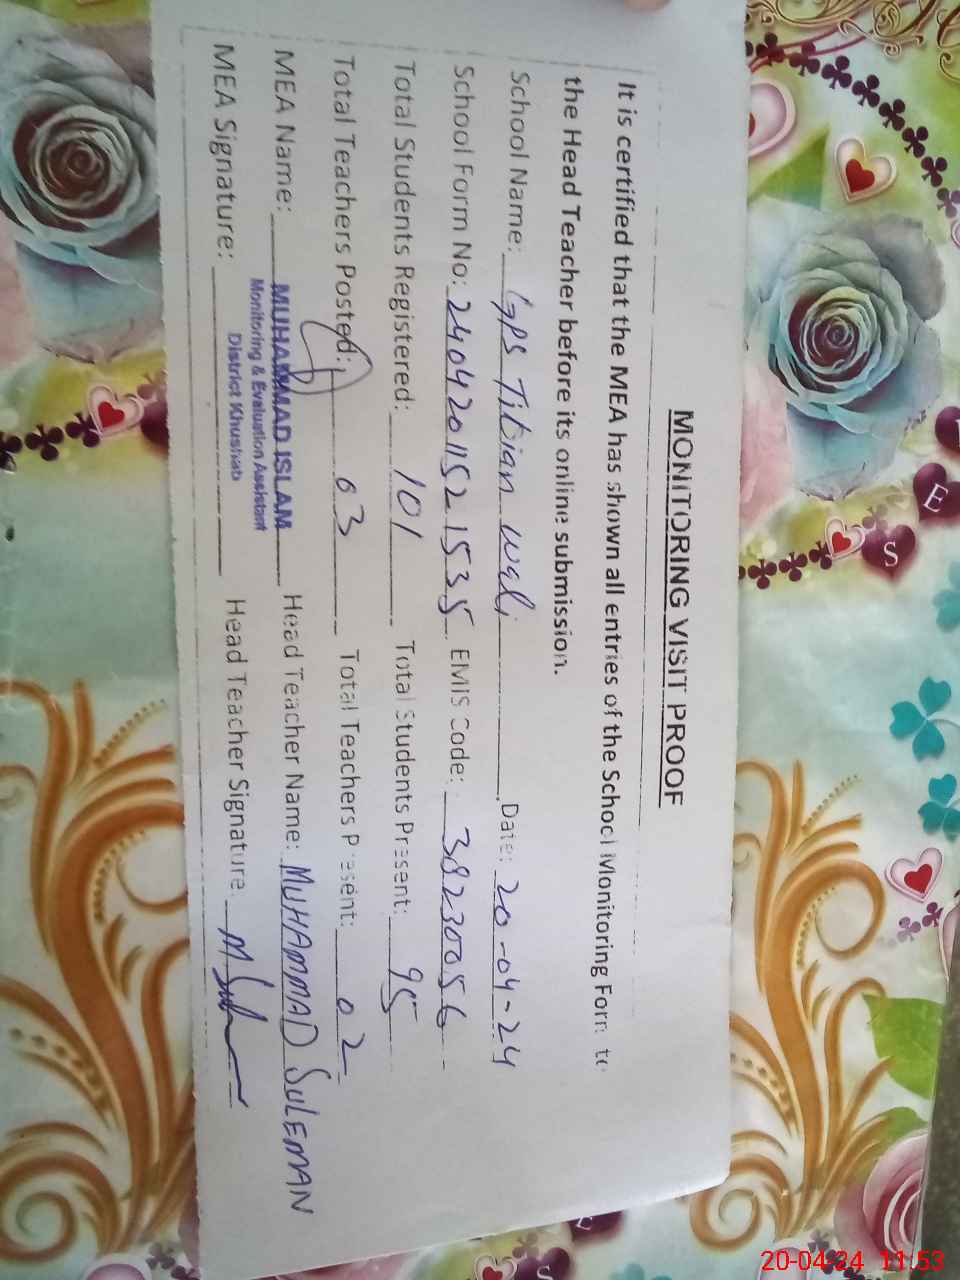 MONITORING VISIT PROOF
It is certified that the MEA has shown all entries of the School Monitoring Form to
the Head Teacher before its online submission.
School Name: GPS Tibian Wali Date: 20-04-24
School Form No: 24042011521535 EMIS Code: 38230056
Total Students Registered: 101 Total Students Present: 95
Total Teachers Posted: 03 Total Teachers Present: 02
MEA Name: MUHAMMAD ISLAM Head Teacher Name: MUHAMMAD SULEMAN
Monitoring & Evaluation Assistant
District Khushab
MEA Signature: Head Teacher Signature:
E
S
20-04-24 11:53